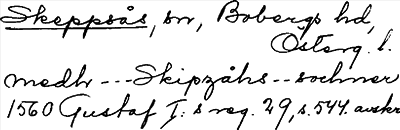 Skeppsås, sn, Bobergs hd,
Österg. l.
medh --- Skipzåhs -- sochner
1560 Gustaf I: s reg. 29, s. 544. avskr